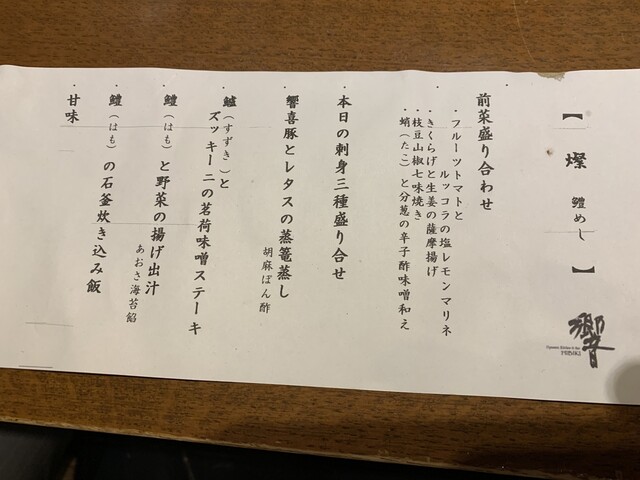 【 燦 鱧めし 】
響
Dynamic Kitchen & Bar
HIBIKI
・前菜盛り合わせ
・フルーツトマトと
ルッコラの塩レモンマリネ
・きくらげと生姜の薩摩揚げ
・枝豆山椒七味焼き
・蛸（たこ）と分葱の辛子酢味噌和え
・本日の刺身三種盛り合せ
・響喜豚とレタスの蒸篭蒸し
胡麻ぽん酢
・鱸（すずき）と
ズッキーニの茗荷味噌ステーキ
・鱧（はも）と野菜の揚げ出汁
あおさ海苔餡
・鱧（はも）の石釜炊き込み飯
・甘味